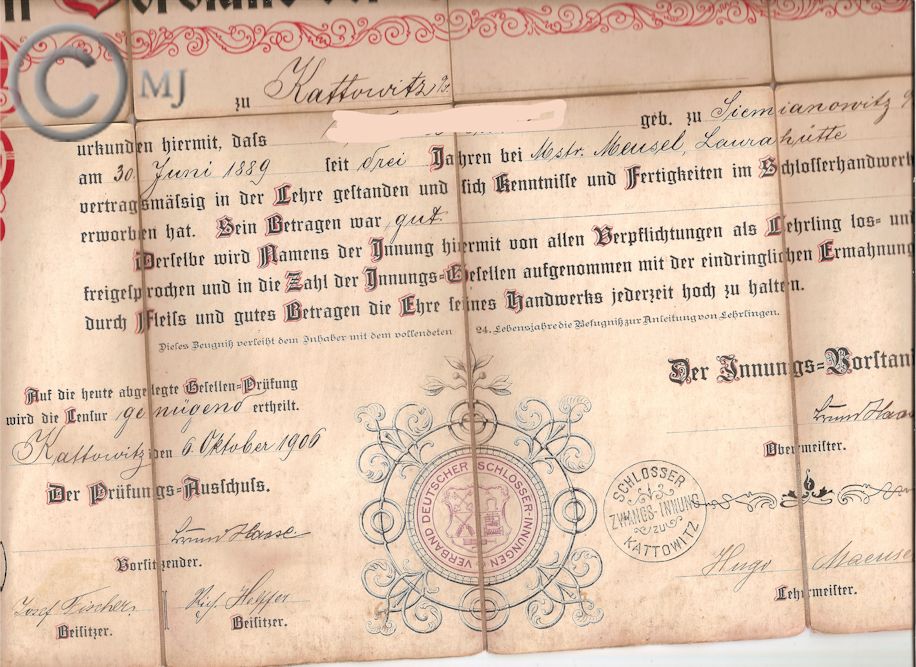 © MJ
zu Kattowitz %.
urkunden hiermit, dafs geb. zu Siemianowitz
am 30. Juni 1889 seit drei Jahren bei Mstr. Meusel, Laurahütte
vertragsmäsig in der Lehre gestanden und sich Kenntnisse und Fertigkeiten im Schlosserhandwerk
erworben hat. Sein Betragen war gut.
Derselbe wird Namens der Innung hiermit von allen Verpflichtungen als Lehrling los- und
freigesprochen und in die Zahl der Innungs-Gesellen aufgenommen mit der eindringlichen Ermahnung
durch Fleifs und gutes Betragen die Ehre seines Handwerks jederzeit hoch zu halten.
Dieses Zeugniß verleiht dem Inhaber mit dem vollendeten 24. Lebensjahre die Befugniß zur Anleitung von Lehrlingen.
Auf die heute abgelegte Gesellen-Prüfung
wird die Censur genügend ertheilt.
Kattowitz den 6. Oktober 1906
Der Prüfungs-Ausschufs.
Der Innungs-Vorstan
Bruno Haase
Obermeister.
VERBAND DEUTSCHER SCHLOSSER-INNUNGEN
SCHLOSSER
ZWANGS-INNUNG
ZU
KATTOWITZ
Bruno Haase
Vorsitzender.
Hugo
Lehrmeister.
Josef Fischer
Beisitzer.
Beisitzer.